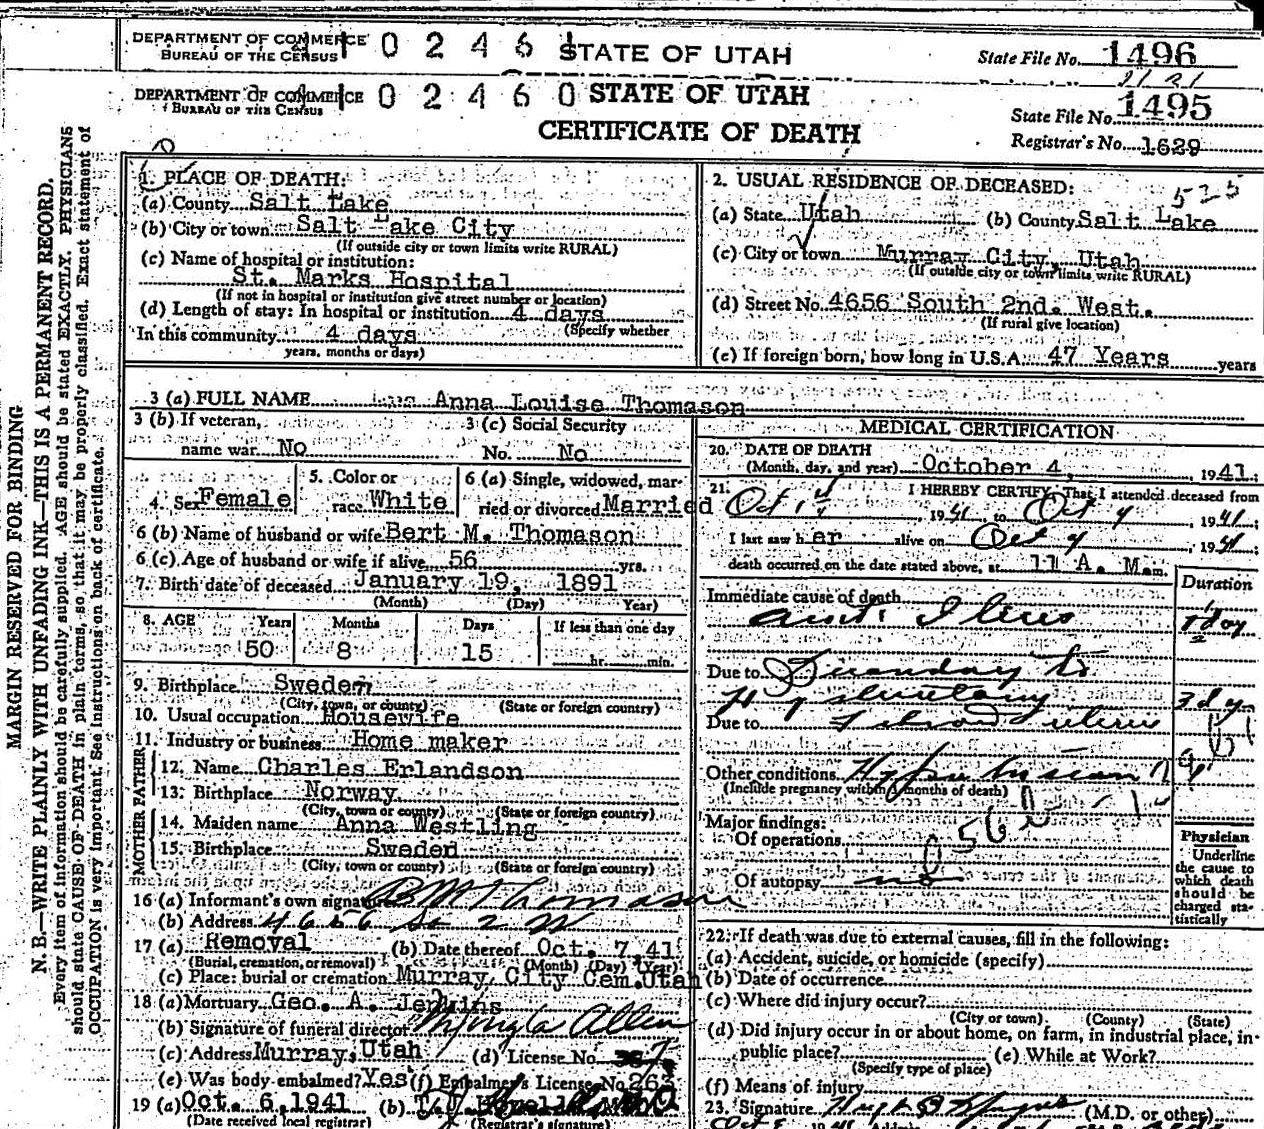 DEPARTMENT OF COMMERCE
BUREAU OF THE CENSUS
0 2 4 6 1 STATE OF UTAH
State File No. 1496
DEPARTMENT OF COMMERCE
BUREAU OF THE CENSUS
0 2 4 6 0 STATE OF UTAH
CERTIFICATE OF DEATH
State File No. 1495
Registrar's No. 1629
MARGIN RESERVED FOR BINDING
N. B.—WRITE PLAINLY WITH UNFADING INK—THIS IS A PERMANENT RECORD.
Every item of information should be carefully supplied. AGE should be stated EXACTLY. PHYSICIANS
should state CAUSE OF DEATH in plain terms, so that it may be properly classified. Exact statement of
OCCUPATION is very important. See instructions on back of certificate.
1. PLACE OF DEATH:
(a) County Salt Lake
(b) City or town Salt Lake City
(If outside city or town limits write RURAL)
(c) Name of hospital or institution:
St. Marks Hospital
(If not in hospital or institution give street number or location)
(d) Length of stay: In hospital or institution 4 days
(Specify whether
In this community 4 days
years, months or days)
2. USUAL RESIDENCE OF DECEASED:
525
(a) State Utah (b) County Salt Lake
(c) City or town Murray City, Utah
(If outside city or town limits write RURAL)
(d) Street No. 4656 South 2nd. West.
(If rural give location)
(e) If foreign born, how long in U.S.A. 47 Years years
3 (a) FULL NAME Anna Louise Thomason
3 (b) If veteran,
name war No
3 (c) Social Security
No. No
4. Sex Female
5. Color or
race White
6 (a) Single, widowed, mar-
ried or divorced Married
6 (b) Name of husband or wife Bert M. Thomason
6 (c) Age of husband or wife if alive 56 yrs.
7. Birth date of deceased January 19, 1891
(Month) (Day) Year)
8. AGE Years Months Days If less than one day
50 8 15 hr. min.
9. Birthplace Sweden
(City, town, or county) (State or foreign country)
10. Usual occupation Housewife
11. Industry or business Home maker
FATHER
12. Name Charles Erlandson
13. Birthplace Norway
(City, town or county) (State or foreign country)
MOTHER
14. Maiden name Anna Westling
15. Birthplace Sweden
(City, town or county) (State or foreign country)
16 (a) Informant's own signature B M Thomason
(b) Address 4656 So 2 W
17 (a) Removal (b) Date thereof Oct. 7, 41
(Burial, cremation, or removal) (Month) (Day) (Year)
(c) Place: burial or cremation Murray City Cem. Utah
18 (a) Mortuary Geo. A. Jenkins
(b) Signature of funeral director Allen
(c) Address Murray, Utah (d) License No.
(e) Was body embalmed? Yes (f) Embalmer's License No. 263
19 (a) Oct. 6, 1941 (b)
(Date received local registrar) (Registrar's signature)
MEDICAL CERTIFICATION
20. DATE OF DEATH
(Month, day, and year) October 4, 1941.
21. I HEREBY CERTIFY, That I attended deceased from
Oct 1st, 1941 to Oct 4, 1941;
I last saw h er alive on Oct 4, 1941
death occurred on the date stated above, at 11 A. M. m.
Duration
Immediate cause of death
Ileus
day
Due to Secondary to
Due to
Other conditions Hypertension
(Include pregnancy within 3 months of death)
Major findings:
Of operations
Of autopsy no
Physician
Underline
the cause to
which death
should be
charged sta-
tistically
22. If death was due to external causes, fill in the following:
(a) Accident, suicide, or homicide (specify)
(b) Date of occurrence
(c) Where did injury occur?
(City or town). (County) (State)
(d) Did injury occur in or about home, on farm, in industrial place, in
public place? (e) While at Work?
(Specify type of place)
(f) Means of injury
23. Signature (M.D. or other)